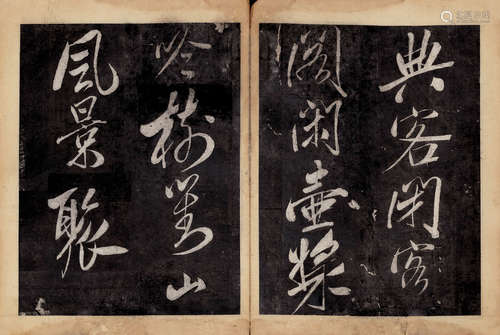 典客客
閑壺漿
吟對山
風景聚